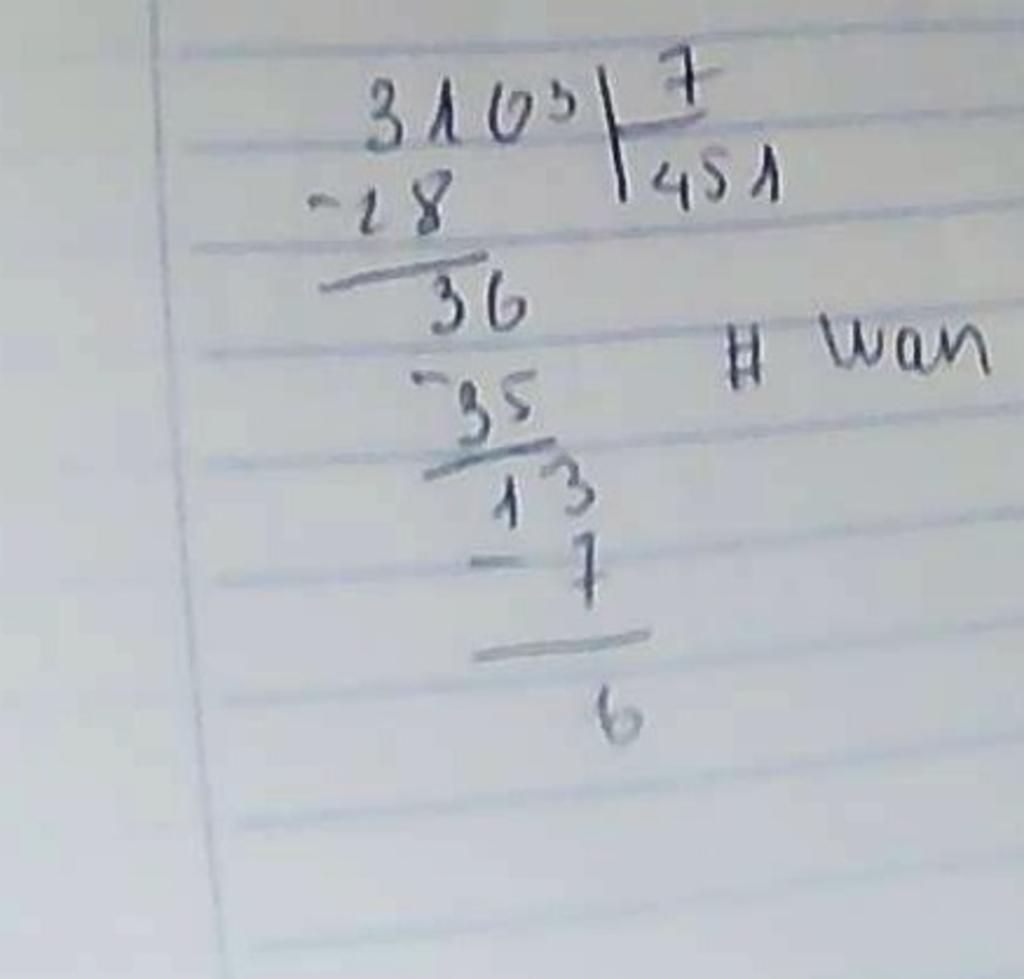 3163 7
-28 451
36
# Wan
-35
13
- 7
6